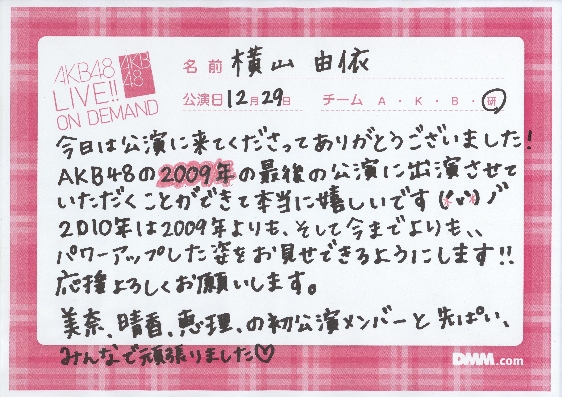 AKB48
LIVE!!
ON DEMAND
AKB
48
名前 横山 由依
公演日 12月29日 チーム A・K・B・研
今日は公演に来てくださってありがとうございました!
AKB48の2009年の最後の公演に出演させて
いただくことができて本当に嬉しいです(・v・)ノ゛
2010年は2009年よりも、そして今までよりも、、
パワーアップした姿をお見せできるようにします!!
応援よろしくお願いします。
美奈、晴香、恵理、の初公演メンバーと先ぱい、
みんなで頑張りました♡
DMM.com